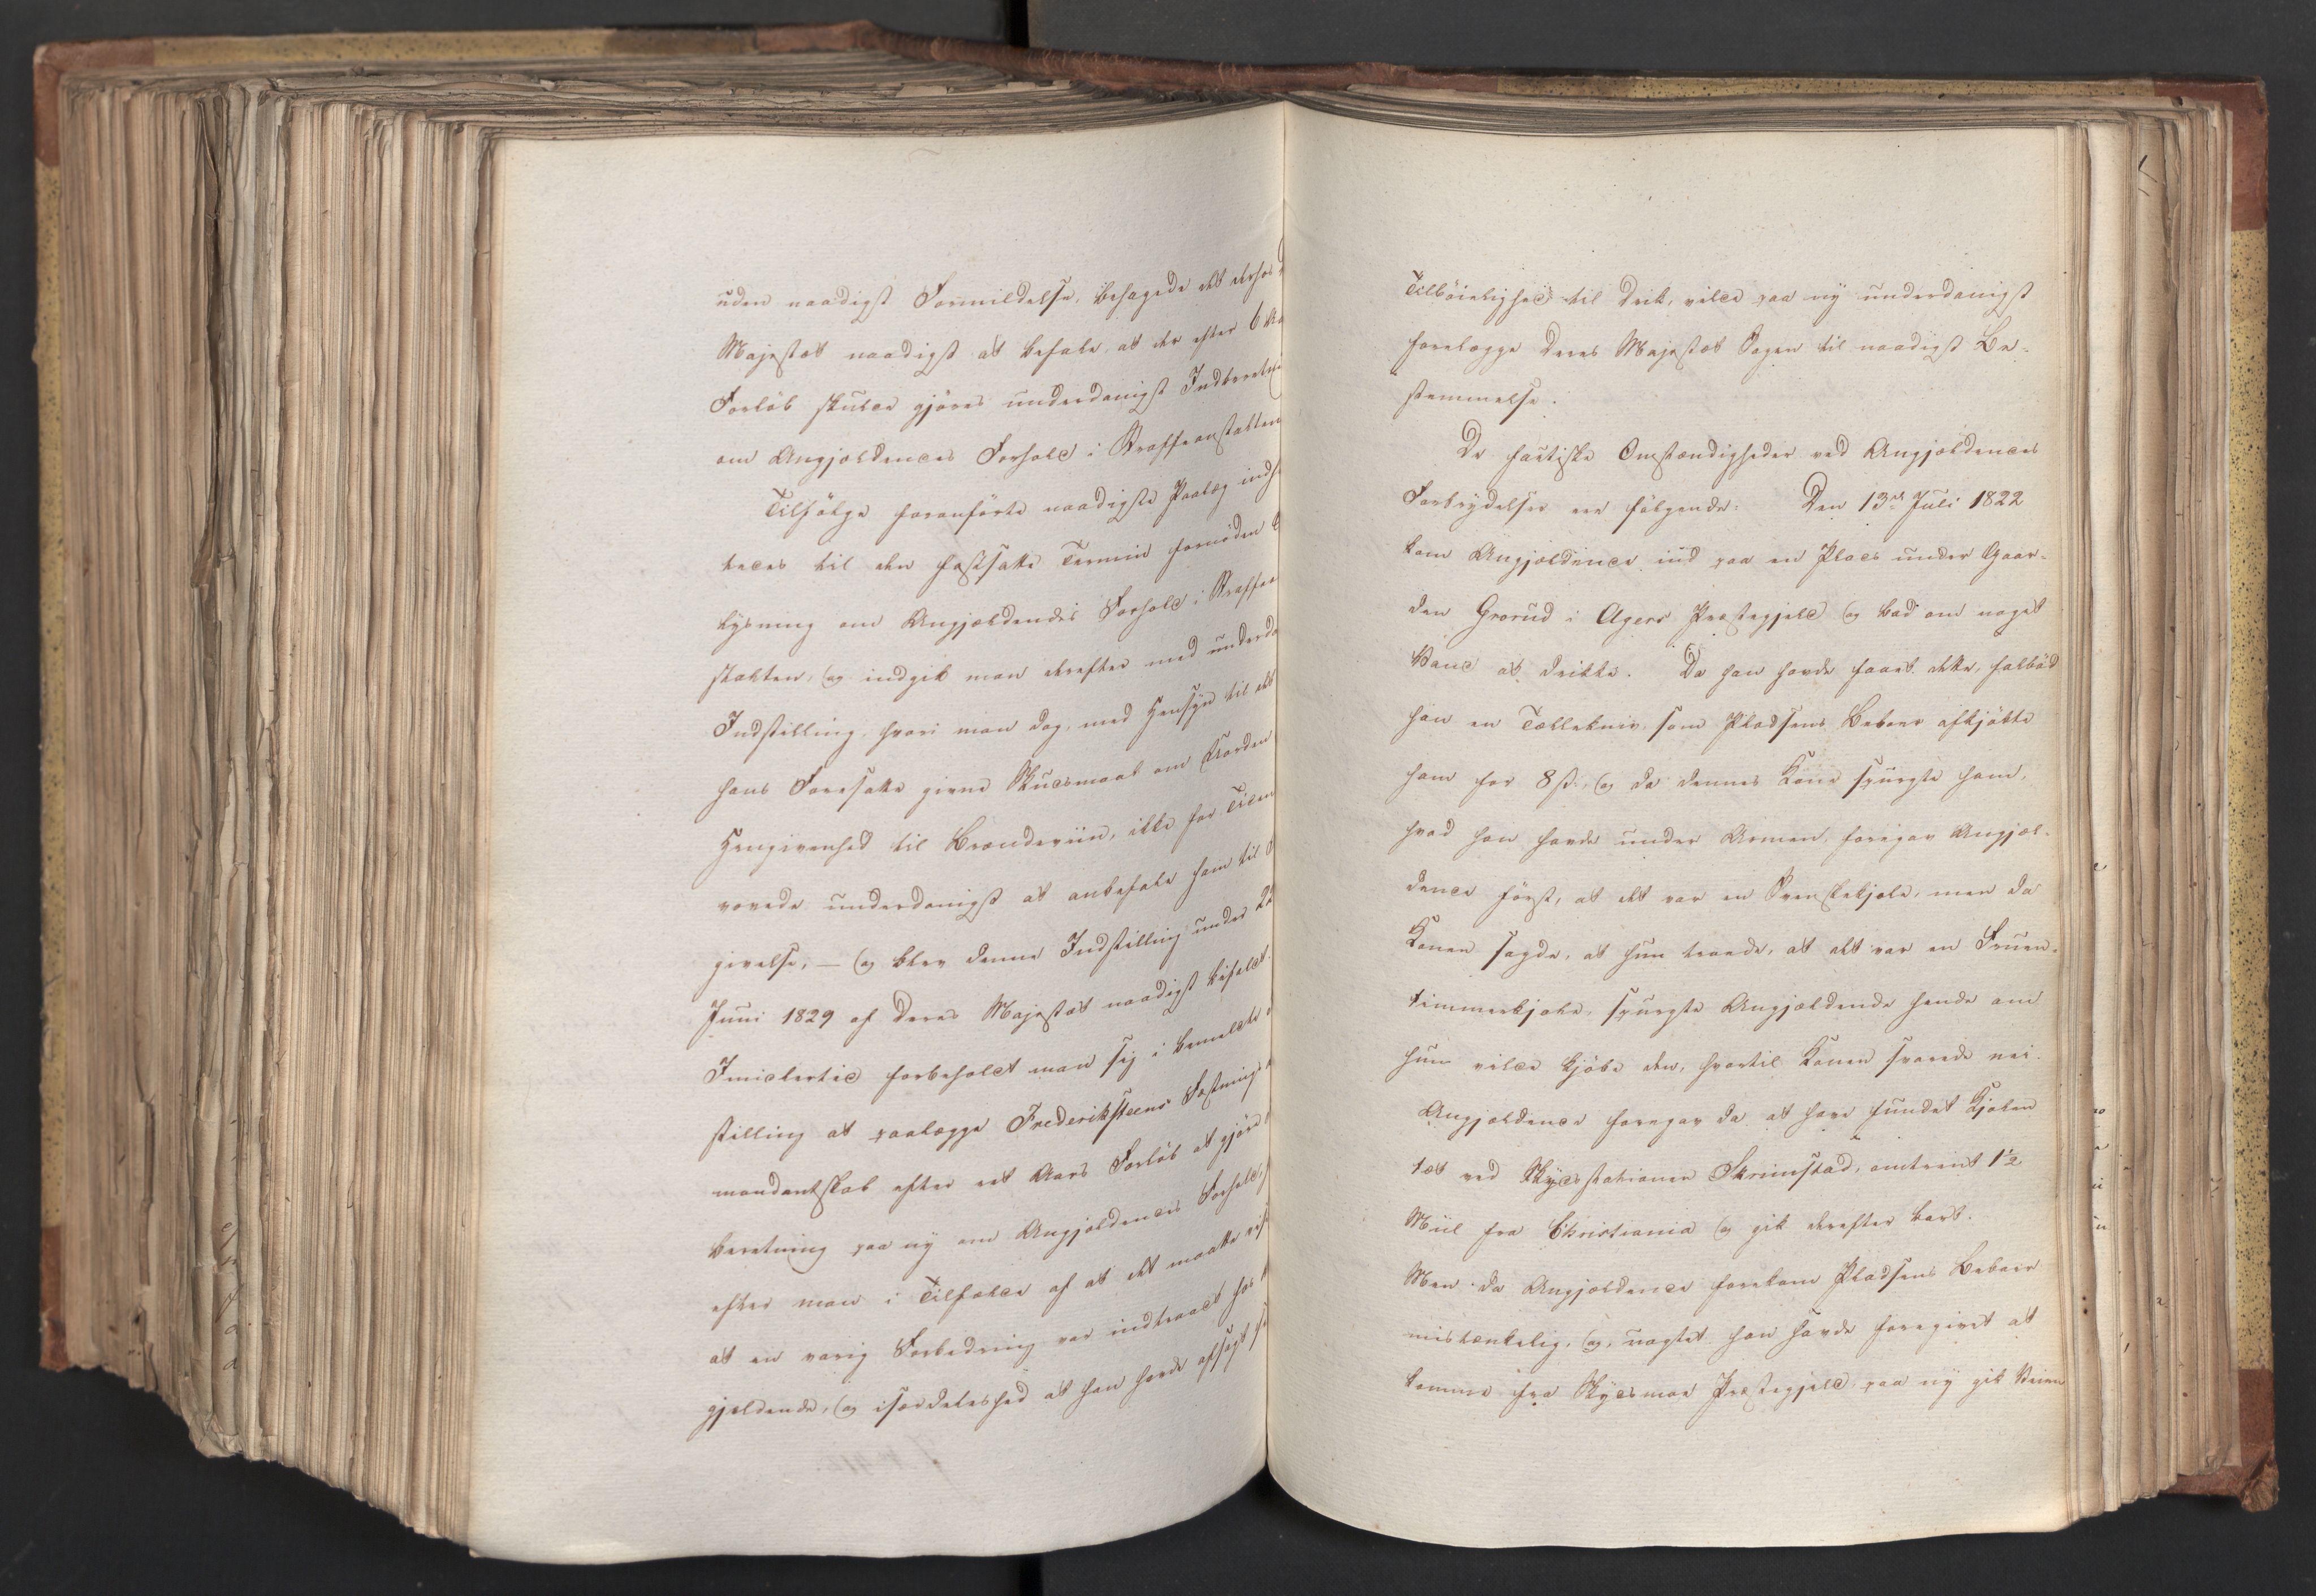 uden naadigst Formildelse, behagede det derhos D
Majestæt naadigst at befale, at der efter 6 Aa
Forløb skulde gjøres underdanigst Indberetn
om Angjældendes Forhold i Straffeanstalten
Tilfølge foranførte naadigste Paalæg indh
tedes til den fastsatte Termin fornøden O
lysning om Angjældendes Forhold i Straffea
stalten, og indgik man derefter med underda
Indstilling, hvori man dog, med Hensyn til det
hans Foresatte givne Skudsmaal om
Hengivenhed til Brændeviin, ikke for Tiden
vovede underdanigst at anbefale ham til
givelse, — og blev denne Indstilling under 22
Juni 1829 af Deres Majestæt naadigst bifaldt.
Imidlertid forbeholdt man sig i bemeldte
stilling at paalægge Frederiksteens Fæstnings
mandantskab efter eet Aars Forløb at gjøre
beretning paa ny om Angjældendes Forhold,
efter man i Tilfælde af at det maatte vis
at en varig Forbedring var indtraadt hos
gjældende, og isærdeleshed at han havde aflagt s
Tilbøielighed til Drik, vilde paa ny underdanigst
forelægge Deres Majestæt Sagen til naadigst Be-
stemmelse.
De factiske Omstændigheder ved Angjældendes
Forbrydelser ere følgende: Den 13de Juli 1822
kom Angjældende ind paa en Plads under Gaar-
den Grorud i Agers Præstegjeld og bad om noget
Vand at drikke. Da han havde faaet dette, falbød
han en Tællekniv, som Pladsens Beboer afkjøbte
ham for 8 ß., og da dennes Kone spurgte ham,
hvad han havde under Armen, foregav Angjæl-
dende først, at det var en Prestekjole, men da
Konen sagde, at hun troede, at det var en Fruen-
timmerkjole, spurgte Angjældende hende om
hun vilde kjøbe den, hvortil Konen svarede nei.
Angjældende foregav da at have fundet Kjolen
tæt ved Skydsstationen Skrimstad, omtrent 1½
Miil fra Christiania og gik derefter bort.
Men da Angjældende forekom Pladsens Beboer
mistænkelig, og, uagtet han havde foregivet at
komme fra Skydsmoe Præstegjeld, paa ny gik Veien